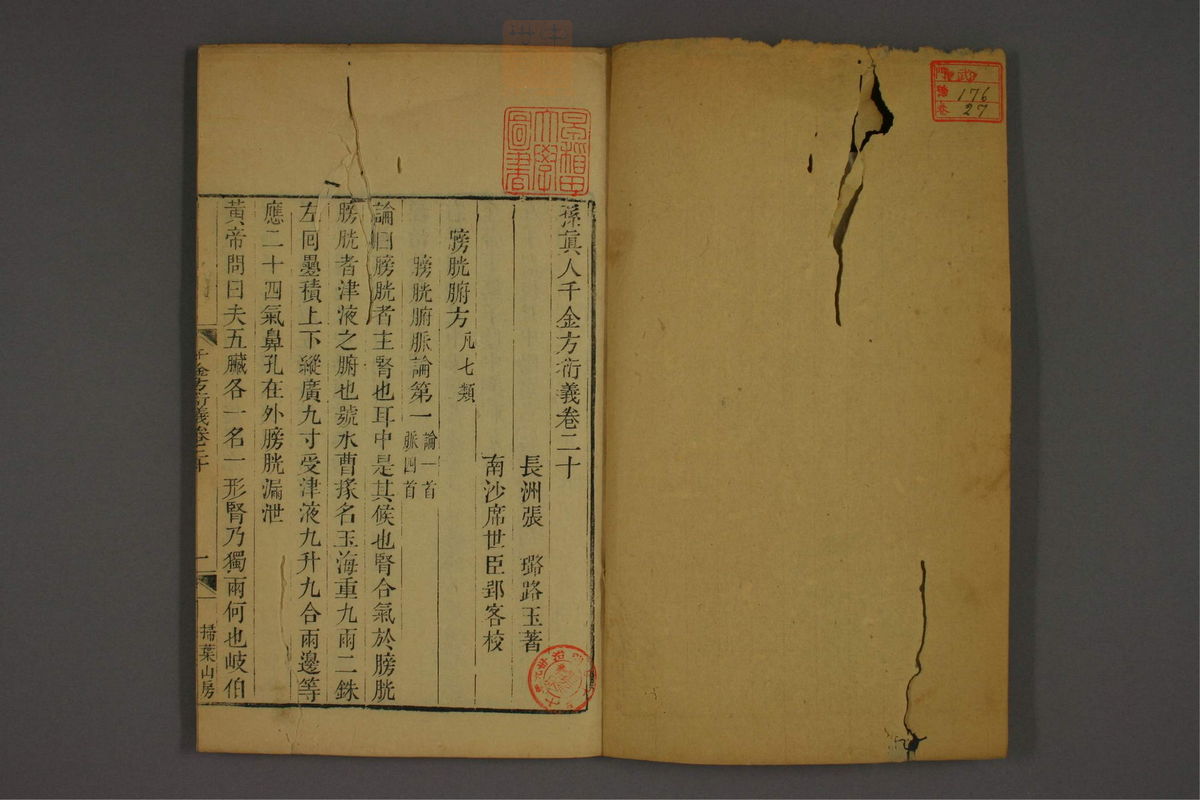 176
27
孫眞人千金方衍義卷二十
長洲張　璐路玉著
南沙席世臣郢客校
膀胱腑方凡七類
膀胱腑脈論第一論一首脈四首
論曰膀胱者主腎也耳中是其候也腎合氣於膀胱
膀胱者津液之腑也號水曹掾名玉海重九兩二銖
左囘疊積上下縱廣九寸受津液九升九合兩邊等
應二十四氣鼻孔在外膀胱漏泄
黃帝問曰夫五臟各一名一形腎乃獨兩何也岐伯
千金方衍義卷二十
一
掃葉山房
早稻田大學圖書